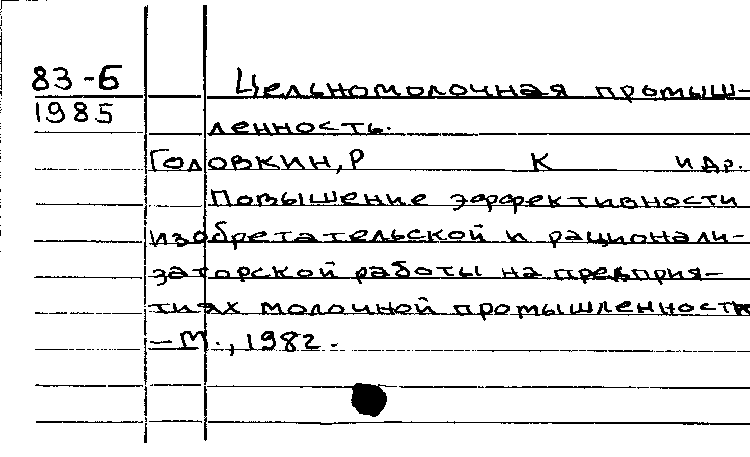 83-Б Цельномолочная промыш-
1985
ленность.
Головкин, Р К и др.
Повышение эффективности
изобретательской и рационали-
заторской работы на предприя-
тиях молочной промышленности
-М., 1982.